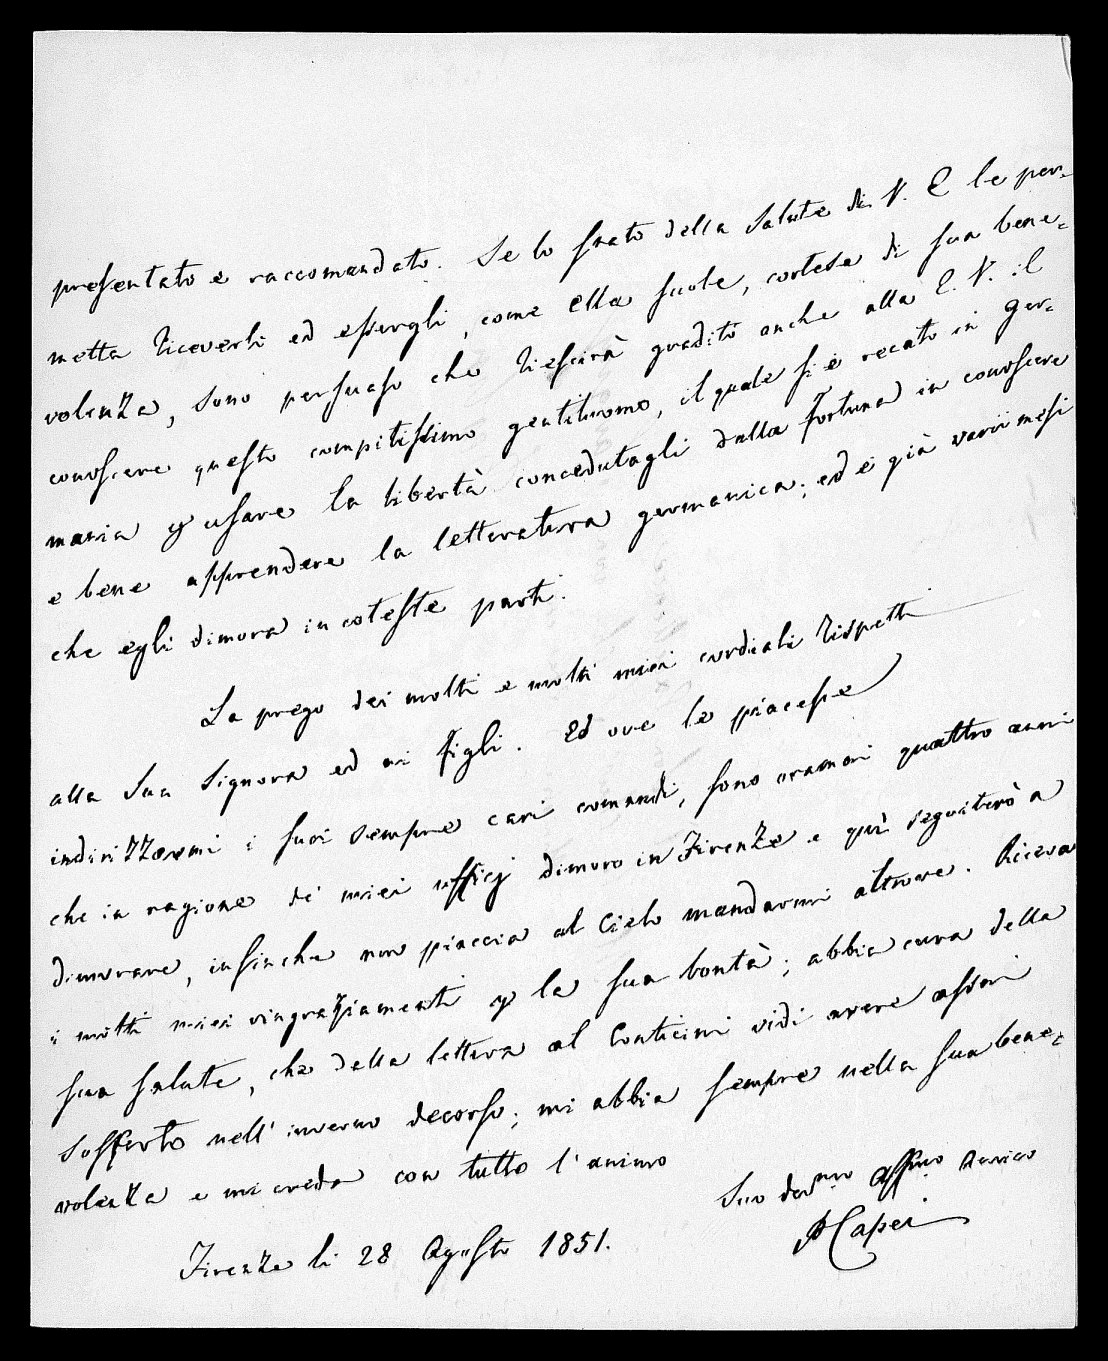 presentato e raccomandato. Se lo stato della Salute di V. E le per=
metta riceverli ed essergli, come Ella suole, cortese di sua bene=
volenza, sono persuaso che riescirà gradito anche alla E. V. il
conoscere questo compitissimo gentiluomo, il quale si è recato in Ger=
mania p usare la libertà concedutagli dalla fortuna in conoscere
e bene apprendere la letteratura germanica; ed è già varii mesi
che egli dimora in coteste parti.
La prego dei molti e molti miei cordiali rispetti
alla Sua Signora ed ai figli. Ed ove le piacesse
indirizzarmi i suoi sempre cari comandi, sono oramai quattro anni
che in ragione de' miei ufficj dimoro in Firenze e quì seguiterò a
dimorare, insinche non piaccia al Cielo mandarmi altrove. Riceva
i molti miei ringraziamenti p la sua bontà; abbia cura della
sua salute, che della lettera al Conticini vidi avere assai
sofferto nell' inverno decorso; mi abbia sempre nella sua bene=
volenza e mi creda con tutto l'animo
Suo devmo affmo Amico
Firenze li 28 Agosto 1851.
P Capei